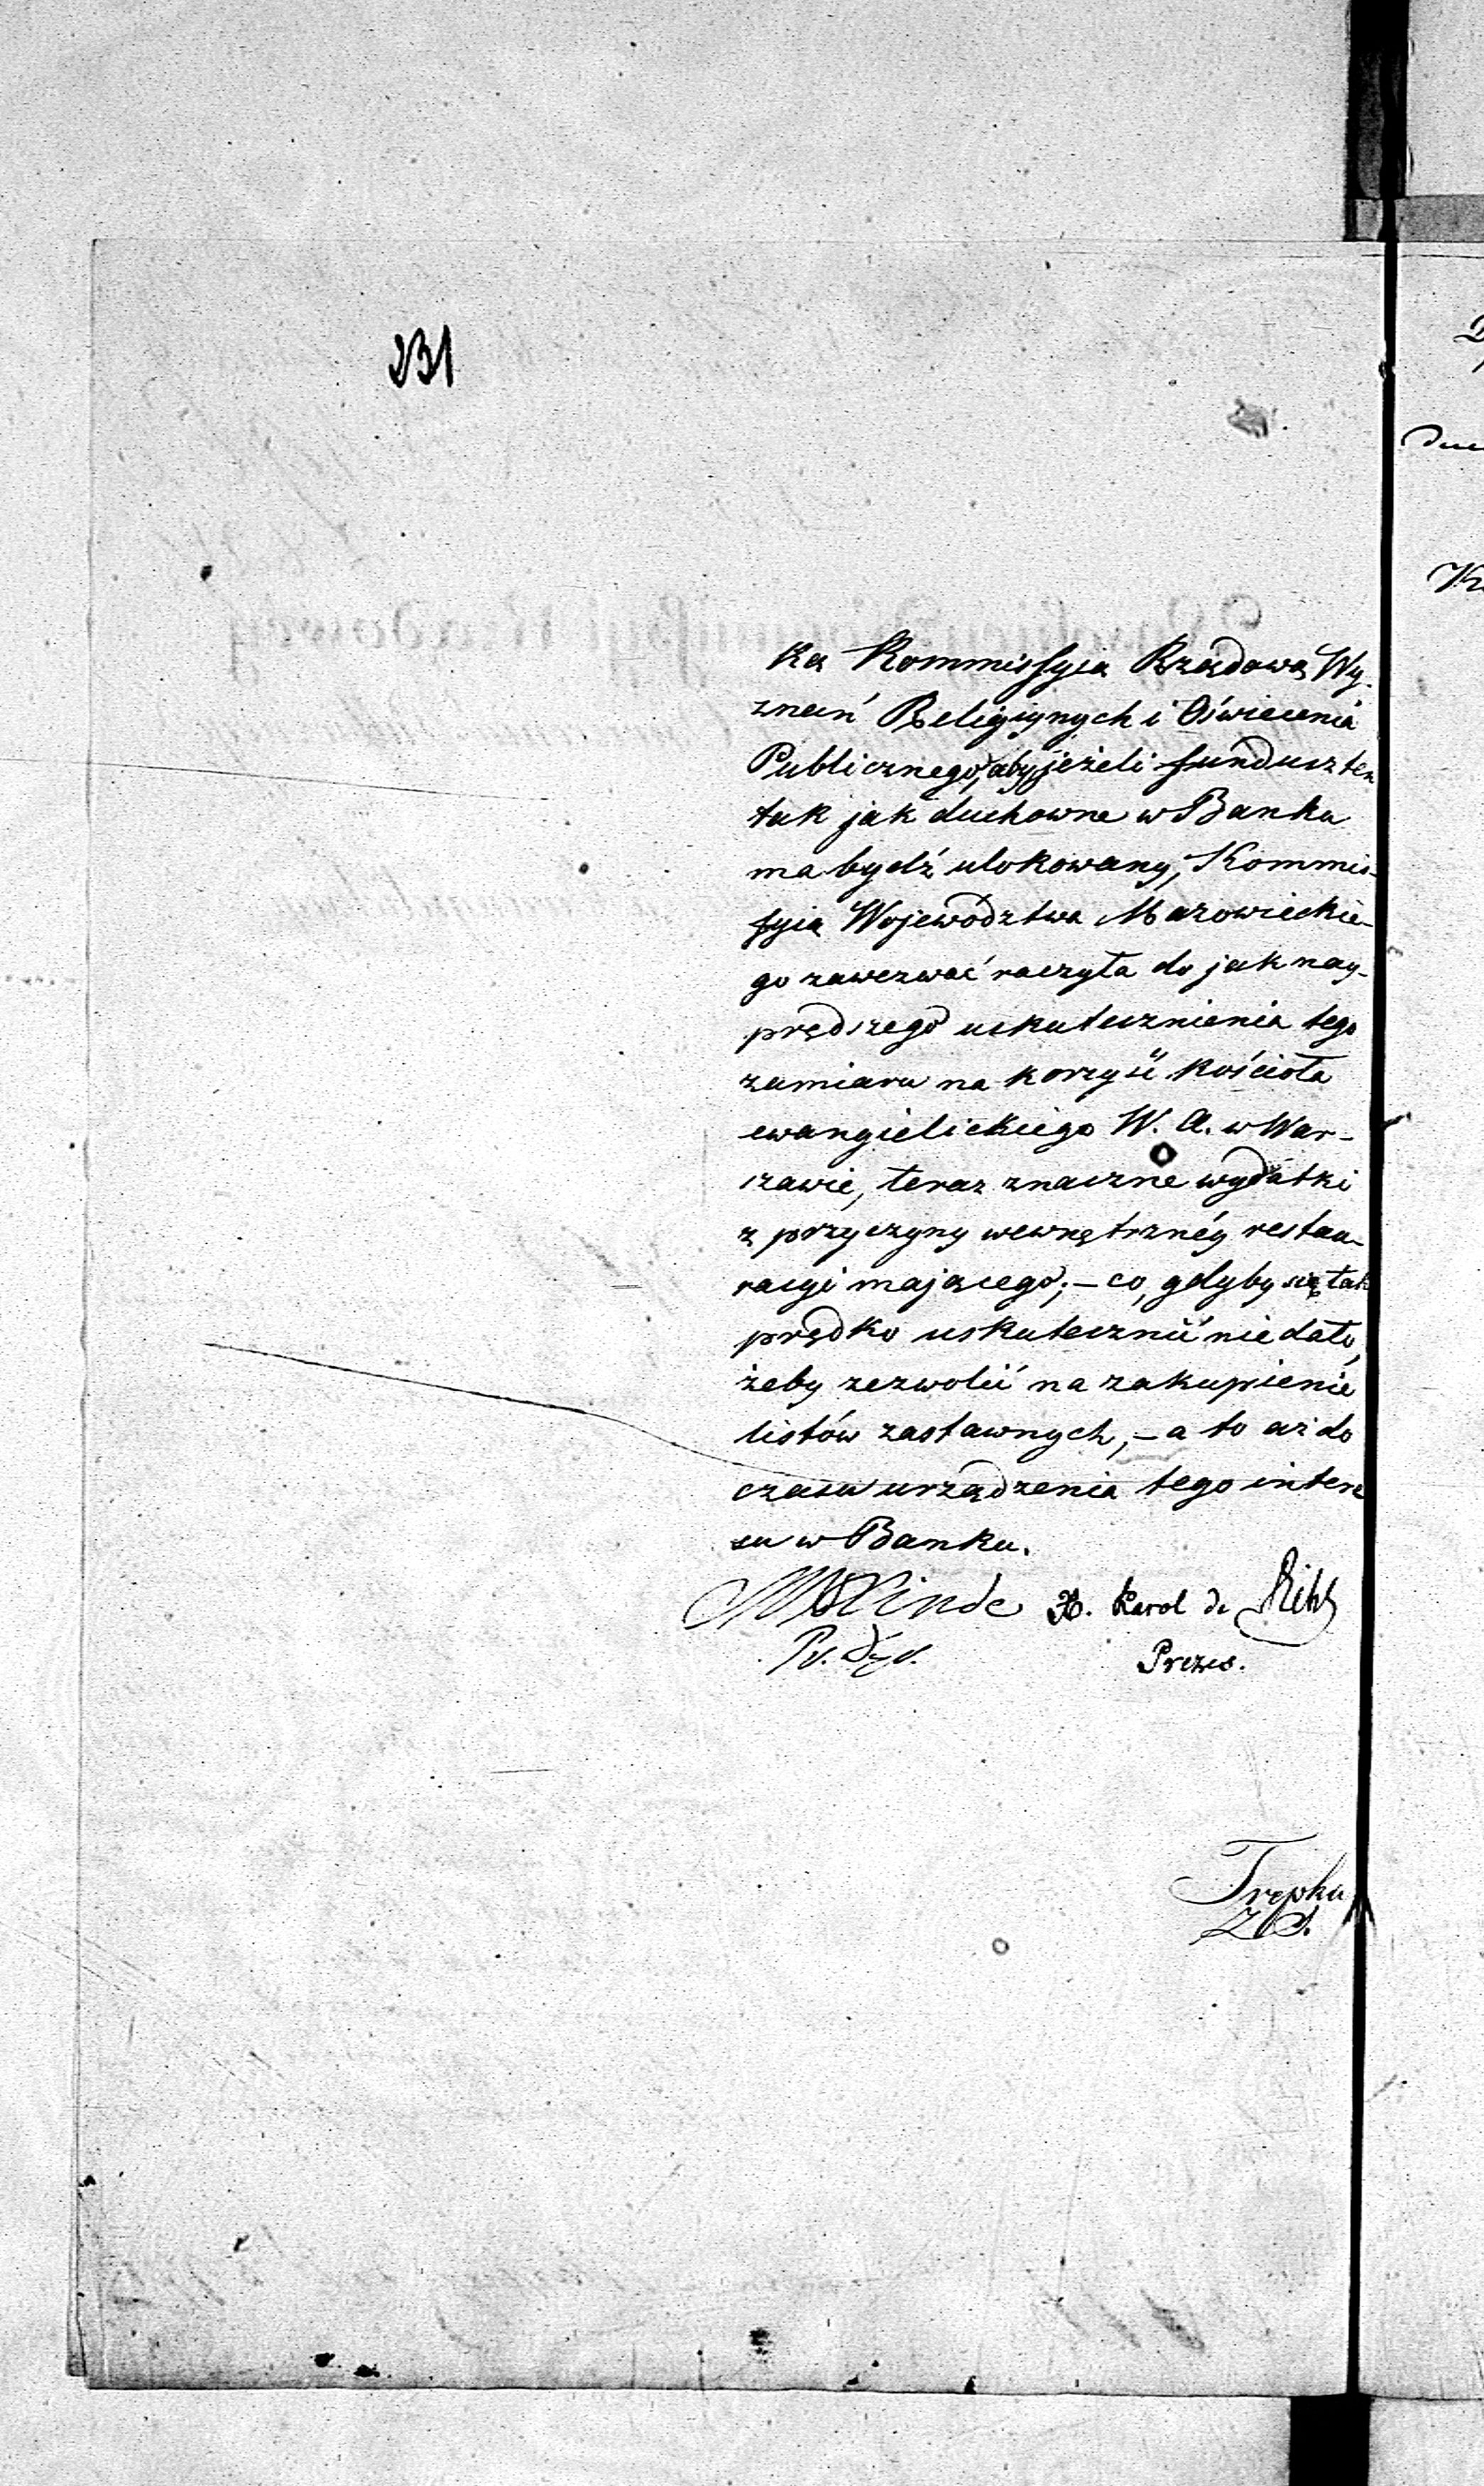 231
ka Kommissyia Rządowa Wy-
znań Religiynych i Oświecenia
Publicznego, aby, jeżeli fundusz ten
tak jak duchowne w Banku
ma bydź ulokowany, Kommis-
syią Województwa Mazowieckie-
go zawezwać raczyła do jak nay-
prędszego uskutecznienia tego
zamiaru na korzyść kościoła
ewangielickiego W. A. w War-
szawie, teraz znaczne wydatki
z przyczyny wewnętrznéy restau-
racyi mającego; – co, gdyby się tak
prędko uskutecznić nie dało,
żeby zezwolić na zakupienie
listów zastawnych, – a to aż do
czasu urządzenia tego intere
su w Banku.
Linde X. Karol de
Prezes.
Trepka
Z S.